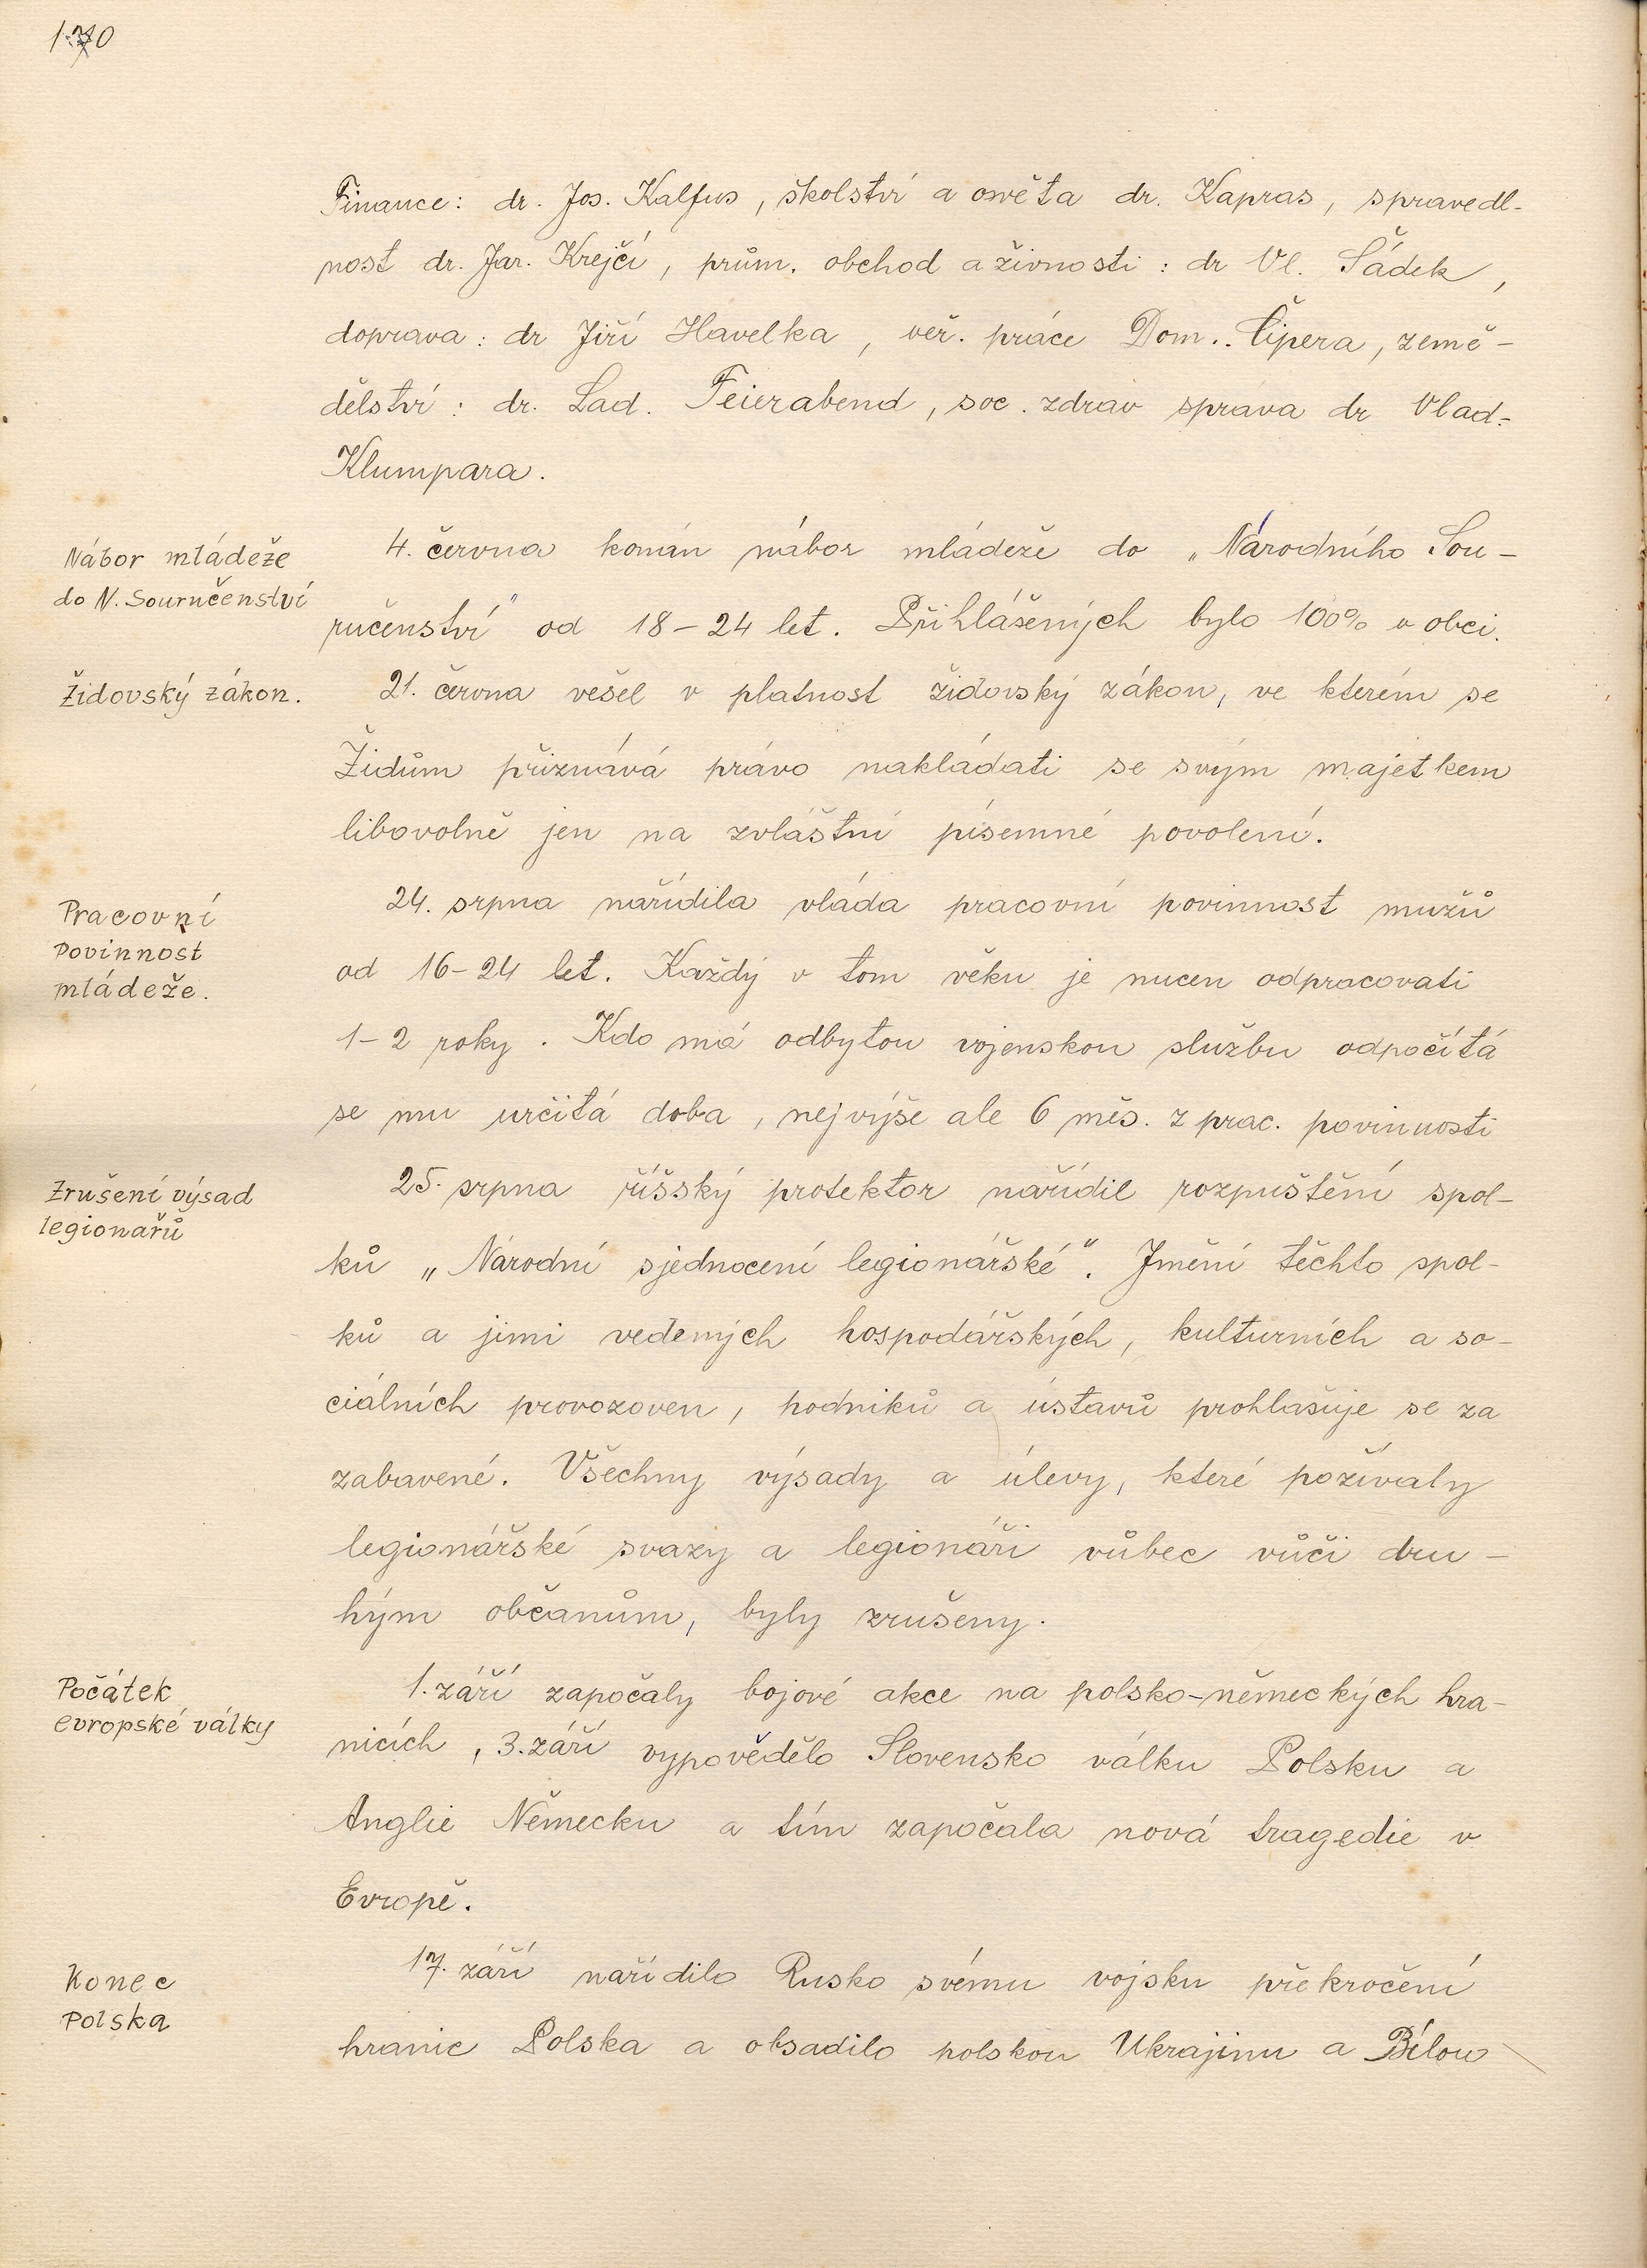 170
Finance: dr. Jos. Kalfus, školství a osvěta dr. Kapras, spravedl-
nost dr. Jar. Krejčí, prům. obchod a živnosti: dr Vl. Šádek,
doprava: dr Jiří Havelka, veř. práce Dom.. Čipera, země-
dělství: dr. Lad. Feierabend, soc. zdrav sprava dr Vlad.
Klumpara.
Nábor mládeže
do N. Souručenství
4. června konán nábor mládeže do „Národního Sou-
ručenství" od 18-24 let. Přihlášených bylo 100% v obci.
Židovský zákon.
21. června vešel v platnost židovský zákon, ve kterém se
Židům přiznává právo nakládati se svým majetkem
libovolně jen na zvláštní písemné povolení.
Pracovní
povinnost
mládeže.
24. srpna nařídila vláda pracovní povinnost mužů
od 16-24 let. Každý v tom věku je nucen odpracovati
1-2 roky. Kdo má odbytou vojenskou službu odpočítá
se mu určitá doba, nejvýše ale 6 měs. z prac. povinnosti
Zrušení výsad
legionařů
25. srpna říšský protektor nařídil rozpuštění spol-
ků „Národní sjednocení legionářské". Jmění těchto spol-
ků a jimi vedených hospodářských, kulturních a so-
ciálních provozoven, podniků a ústavů prohlašuje se za
zabavené. Všechny výsady a úlevy, které požívaly
legionářské svazy a legionáři vůbec vůči dru-
hým občanům, byly zrušeny.
Počátek
evropské války
1. září započaly bojové akce na polsko-německých hra-
nicích, 3. září vypovědělo Slovensko válku Polsku a
Anglie Německu a tím započala nová tragedie v
Evropě.
Konec
Polska
17. září nařídilo Rusko svému vojsku překročení
hranic Polska a obsadilo polskou Ukrajinu a Bílou